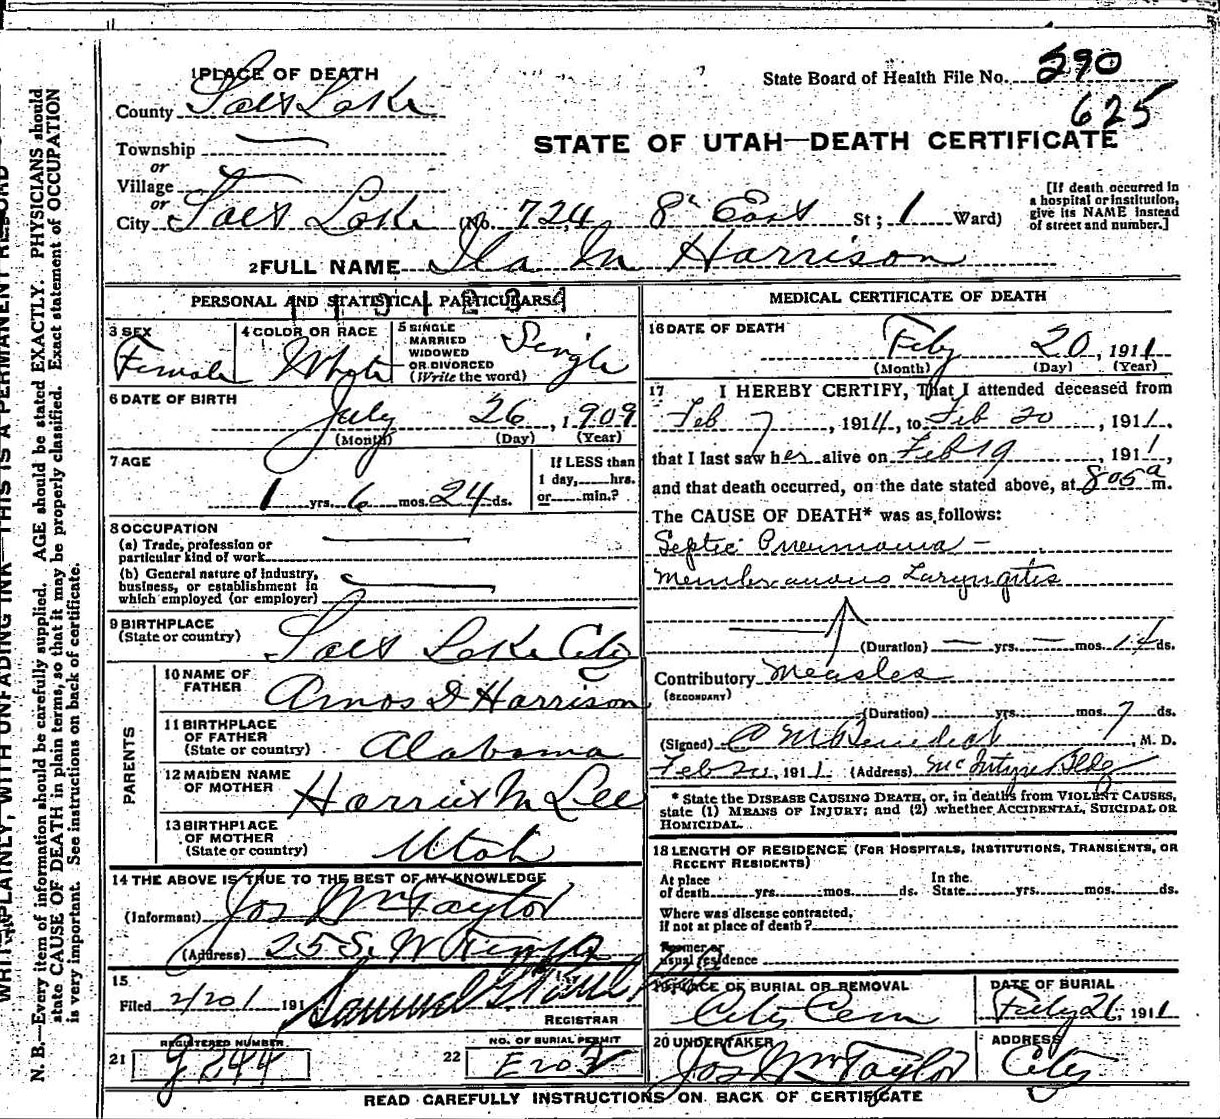 1 PLACE OF DEATH
State Board of Health File No. 290
625
County Salt Lake
STATE OF UTAH—DEATH CERTIFICATE
Township —
or
Village —
or
City Salt Lake (No. 724 8th East St; 1 Ward)
[If death occurred in a hospital or institution, give its NAME instead of street and number.]
2 FULL NAME Ila M Harrison
PERSONAL AND STATISTICAL PARTICULARS
3 SEX Female
4 COLOR OR RACE White
5 SINGLE MARRIED WIDOWED OR DIVORCED (Write the word) Single
6 DATE OF BIRTH July 26, 1909
(Month) (Day) (Year)
7 AGE 1 yrs. 6 mos. 24 ds.
If LESS than 1 day, hrs. or min.?
8 OCCUPATION
(a) Trade, profession or particular kind of work —
(b) General nature of industry, business, or establishment in which employed (or employer) —
9 BIRTHPLACE (State or country) Salt Lake City
PARENTS
10 NAME OF FATHER Amos D Harrison
11 BIRTHPLACE OF FATHER (State or country) Alabama
12 MAIDEN NAME OF MOTHER Harriet M Lee
13 BIRTHPLACE OF MOTHER (State or country) Utah
14 THE ABOVE IS TRUE TO THE BEST OF MY KNOWLEDGE
(Informant) Jos Wm Taylor
(Address) 25 S. W Temple
15
Filed 2/20/ 191 Samuel G Paul
REGISTRAR
21 REGISTERED NUMBER J244
22 NO. OF BURIAL PERMIT E203
MEDICAL CERTIFICATE OF DEATH
16 DATE OF DEATH Feby 20, 1911
(Month) (Day) (Year)
17 I HEREBY CERTIFY, That I attended deceased from
Feb 7, 1911, to Feb 20, 1911,
that I last saw her alive on Feb 19, 1911,
and that death occurred, on the date stated above, at 805 a m.
The CAUSE OF DEATH* was as follows:
Septic Pneumonia —
Membranous Laryngitis
(Duration) — yrs. — mos. 14 ds.
Contributory Measles
(SECONDARY)
(Duration) yrs. mos. 7 ds.
(Signed) C M Benedict, M. D.
Feb 20, 1911 (Address) McIntyre Bldg
* State the DISEASE CAUSING DEATH, or, in deaths from VIOLENT CAUSES, state (1) MEANS OF INJURY; and (2) whether ACCIDENTAL, SUICIDAL OR HOMICIDAL.
18 LENGTH OF RESIDENCE (FOR HOSPITALS, INSTITUTIONS, TRANSIENTS, OR RECENT RESIDENTS)
At place of death yrs. mos. ds. In the State yrs. mos. ds.
Where was disease contracted, if not at place of death?
Former or usual residence
19 PLACE OF BURIAL OR REMOVAL City Cem
DATE OF BURIAL Feby 26, 1911
20 UNDERTAKER Jos Wm Taylor
ADDRESS City
READ CAREFULLY INSTRUCTIONS ON BACK OF CERTIFICATE
WRITE PLAINLY, WITH UNFADING INK—THIS IS A PERMANENT RECORD
N. B.—Every item of information should be carefully supplied. AGE should be stated EXACTLY. PHYSICIANS should
state CAUSE OF DEATH in plain terms, so that it may be properly classified. Exact statement of OCCUPATION
is very important. See instructions on back of certificate.